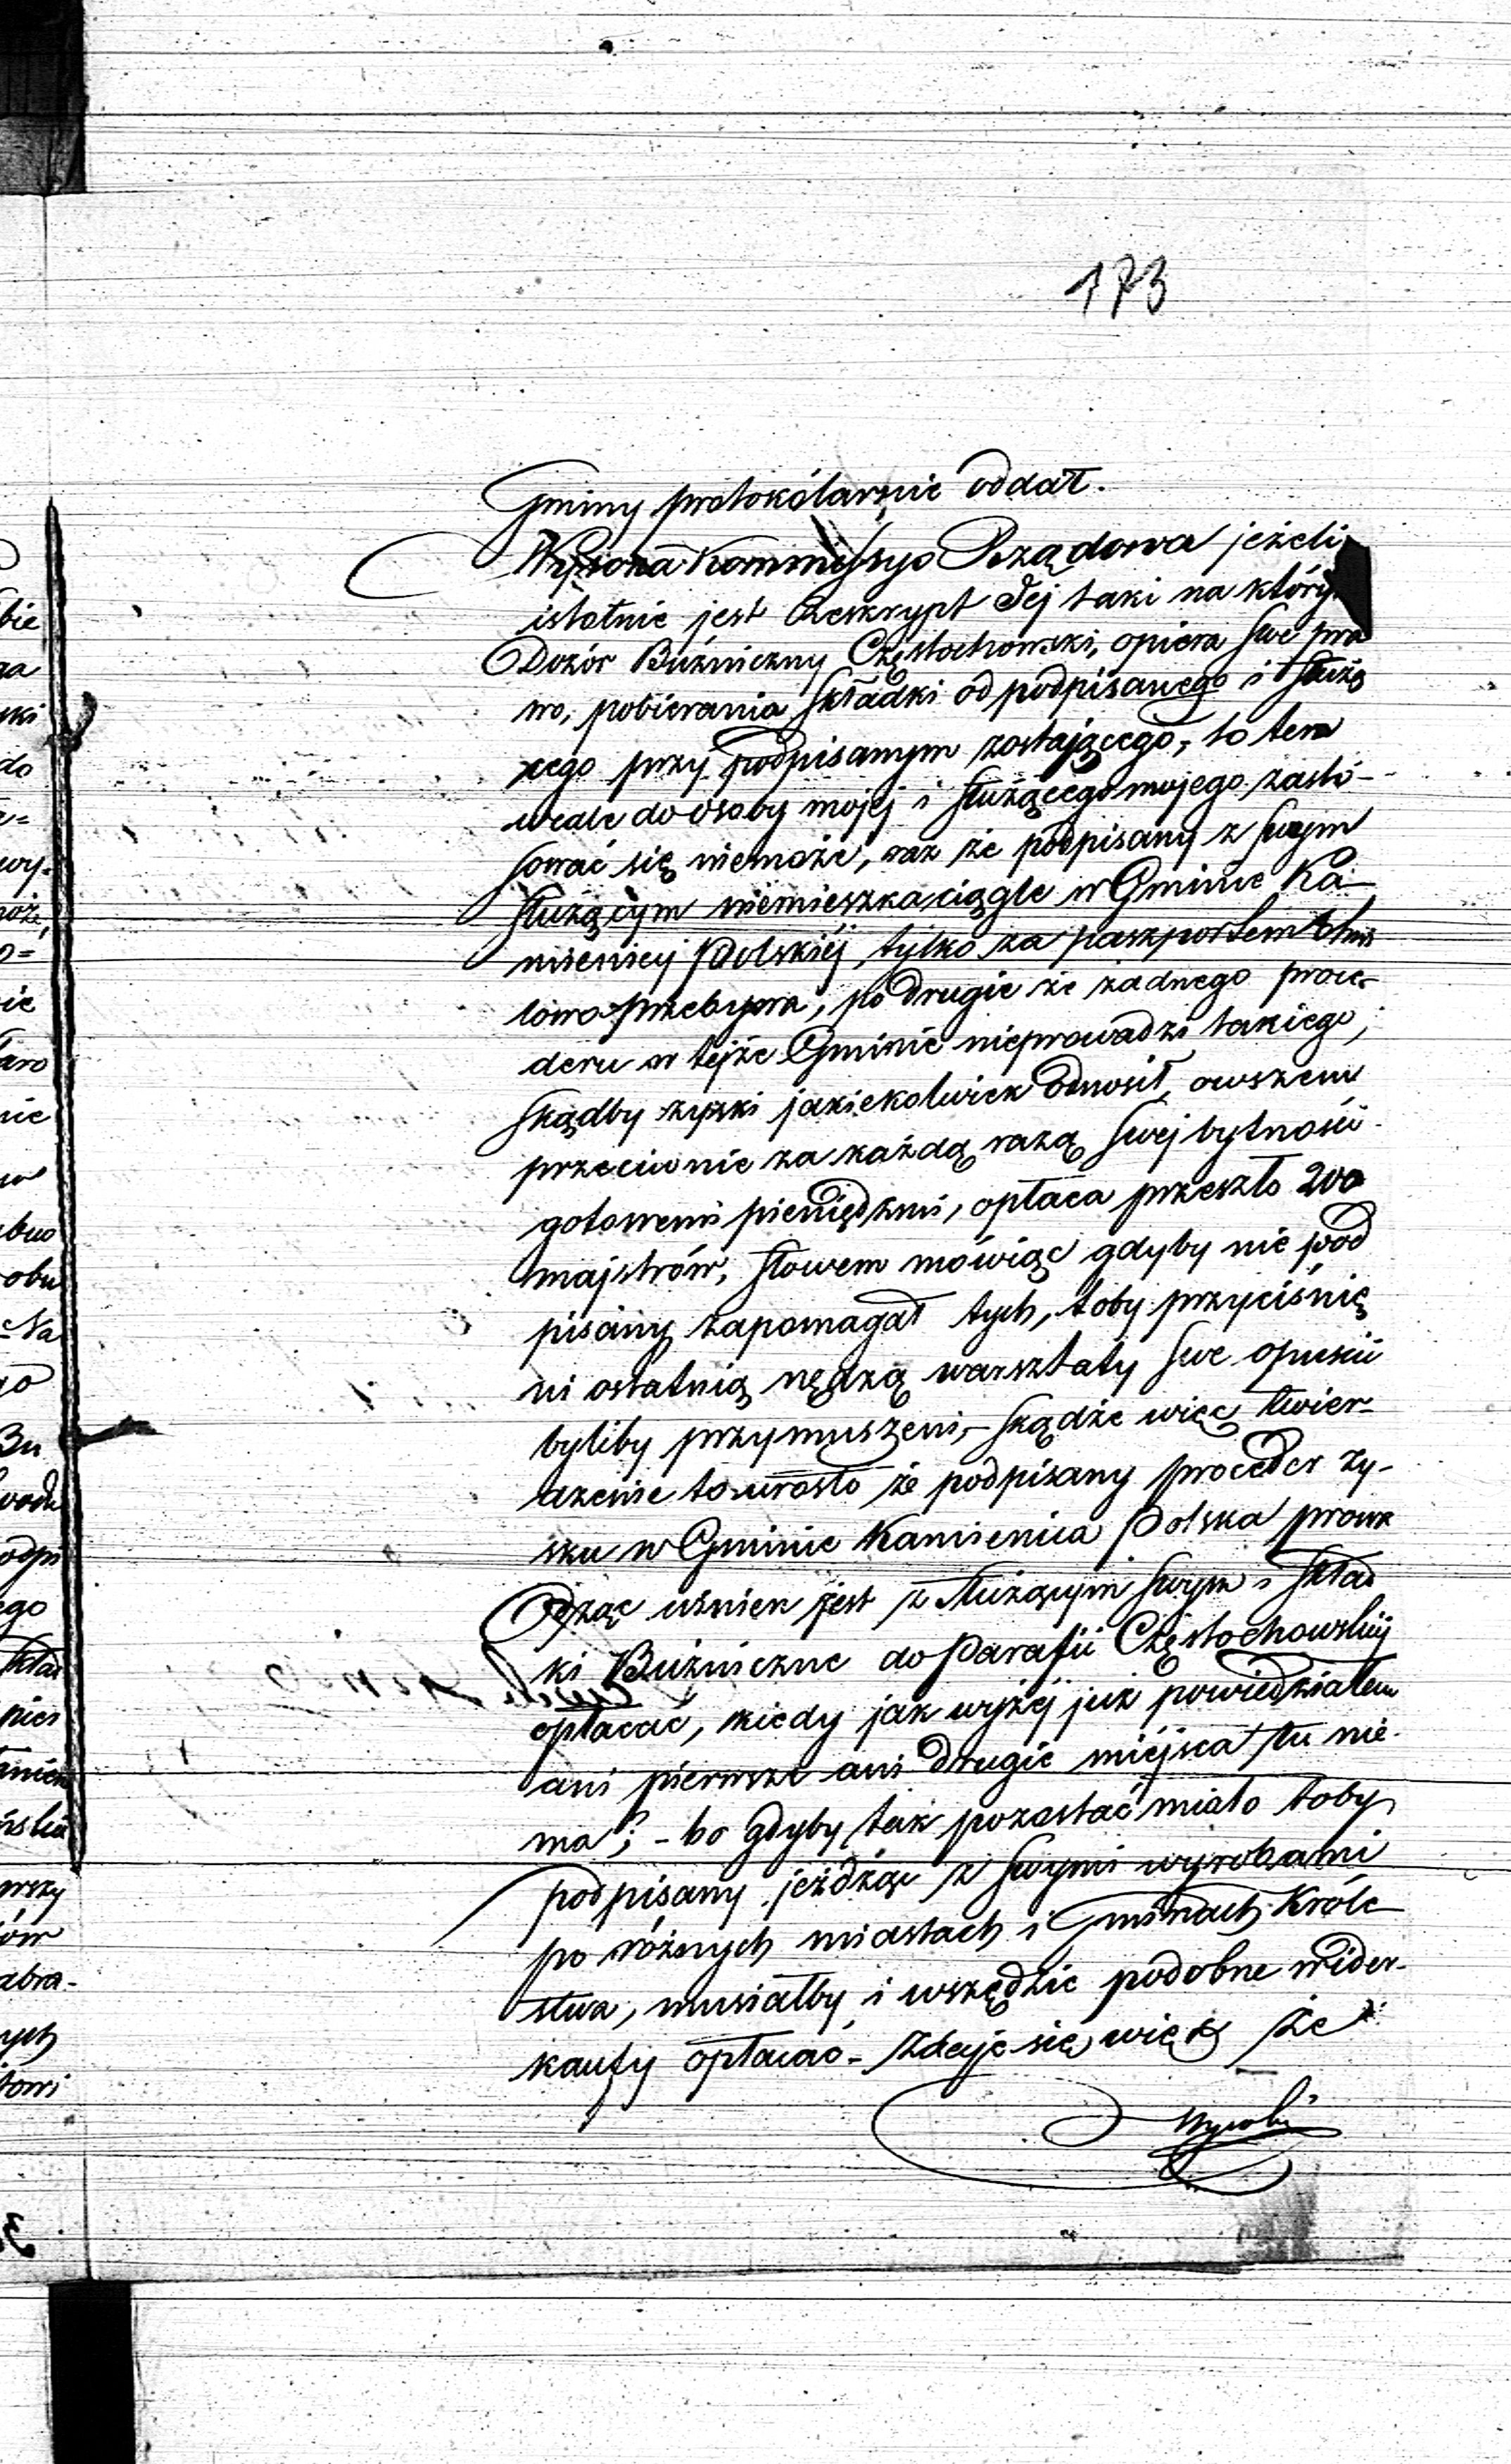 173
Gminy protokólarnie oddał.
Wysoka Kommissyo Rządowa jeżeli
istotnie jest Reskrypt Jej taki na który
Dozór Bużniczny Częstochowski, opiera swe pra
wo, pobierania Składki od podpisanego i służą
cego przy podpisanym zostającego, to ten
wcale do osoby mojej i służącego mojego zasto-
sować się niemoże, raz że podpisany z swym
służącym niemieszka ciągle w Gminie Ka-
mienicy Polskiej, tylko za paszportem chwi
lowo przebywa, po drugie że żadnego proce-
deru w tejże Gminie nieprowadzi takiego,
skądby zyski jakiekolwiek odnosił, owszem
przeciwnie za każdą razą swej bytności
gotowemi pieniędzmi, opłaca przeszło 200
majstrów, słowem mówiąc gdyby nie pod
pisany zapomagał tych, toby przyciśnię
ni ostatnią nędzą warsztaty swe opuścić
byliby przymuszeni, - skądże więc twier-
dzenie to urosło że podpisany proceder zy-
sku w Gminie Kamienica Polska prowa
dząc winien jest z służącym swym i skład
ki Bużniczne do Parafii Częstochowskiej
opłacać, kiedy jak wyżej już powiedziałem
ani pierwsze ani drugie miejsca tu nie
ma; - bo gdyby tak pozostać miało toby
podpisany jeżdżąc z swymi wyrobami
po różnych miastach i Gminach Króle
stwa, musiałby i wszędzie podobne wider-
kaufy opłacać - Zdaje się więc że